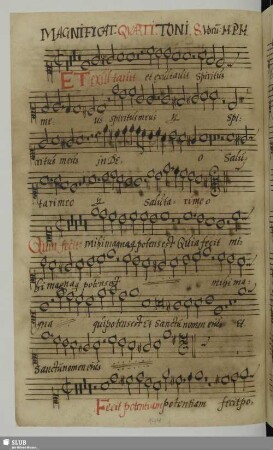 MAGNIFICAT. QVARTI TONI. 8 Vocū. H. P. H.
ET exultauit et exultauit Spiritus
me us spiritus meus ij. Spi
ritus meus in De o Salu
tari meo ij Salutari meo
Quia fecit mihi magna qui potens est Quia fecit mi
hi magna qui potens est mihi ma
gna qui potens est Et Sanctū nomen eius Et
Sanctū nomen eius
Fecit potentiam potentiam fecit po
SLUB